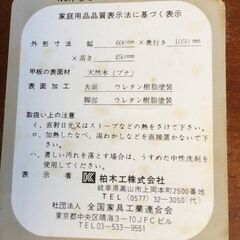 家庭用品品質表示法に基づく表示
外形寸法 幅 600mm×奥行き1050mm
×高さ 450mm
甲板の表面材 天然木(ブナ)
表面加工 表面 ウレタン樹脂塗装
脚部 ウレタン樹脂塗装
取扱い上の注意
イ、直射日光又はストーブなどの熱をさけて下さい。
ロ、加熱したなべ、湯わかしなどを直接置かないで下さい。
ハ、著しい汚れを落とす場合は、うすめた中性洗剤を使用してください。
表示者 柏木工株式会社
岐阜県高山市上岡本町2500番地
TEL(0577)32-3050(代)
社団法人 全国家具工業連合会
東京都中央区晴海3-10JFCビル
TEL03-533-9551